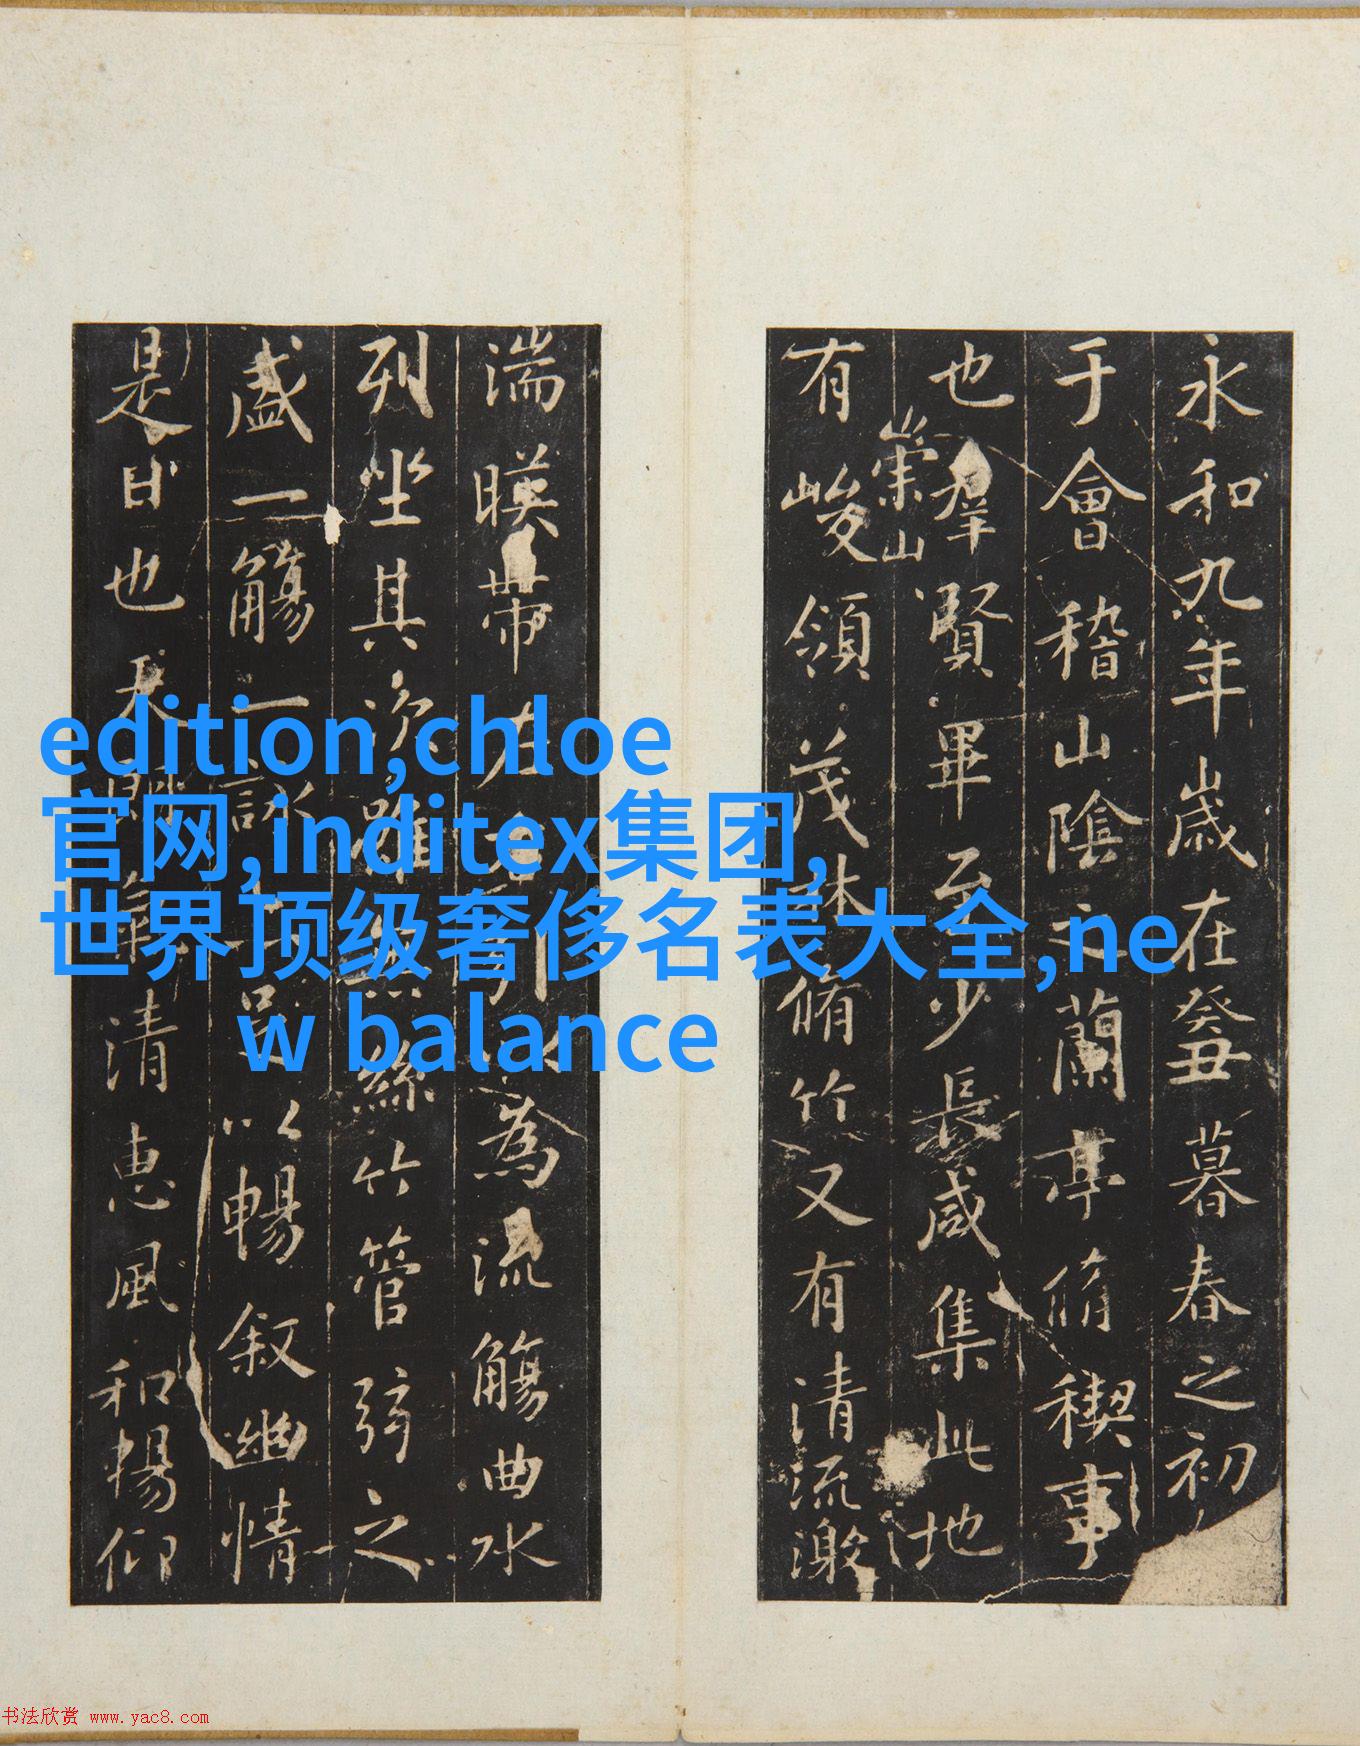 永和九年歲在癸丑暮春之初
于會稽山陰之蘭亭脩稧事
也羣賢畢至少長咸集此地
崇山
有峻領茂林脩竹又有清流激
湍暎帶左右引以為流觴曲水
列坐其次雖無絲竹管弦之
盛一觴一詠亦足以暢敘幽情
是日也天朗氣清惠風和暢仰
edition,chloe
官网,inditex集团,
世界顶级奢侈名表大全,ne
w balance
书法欣赏 www.yac8.com